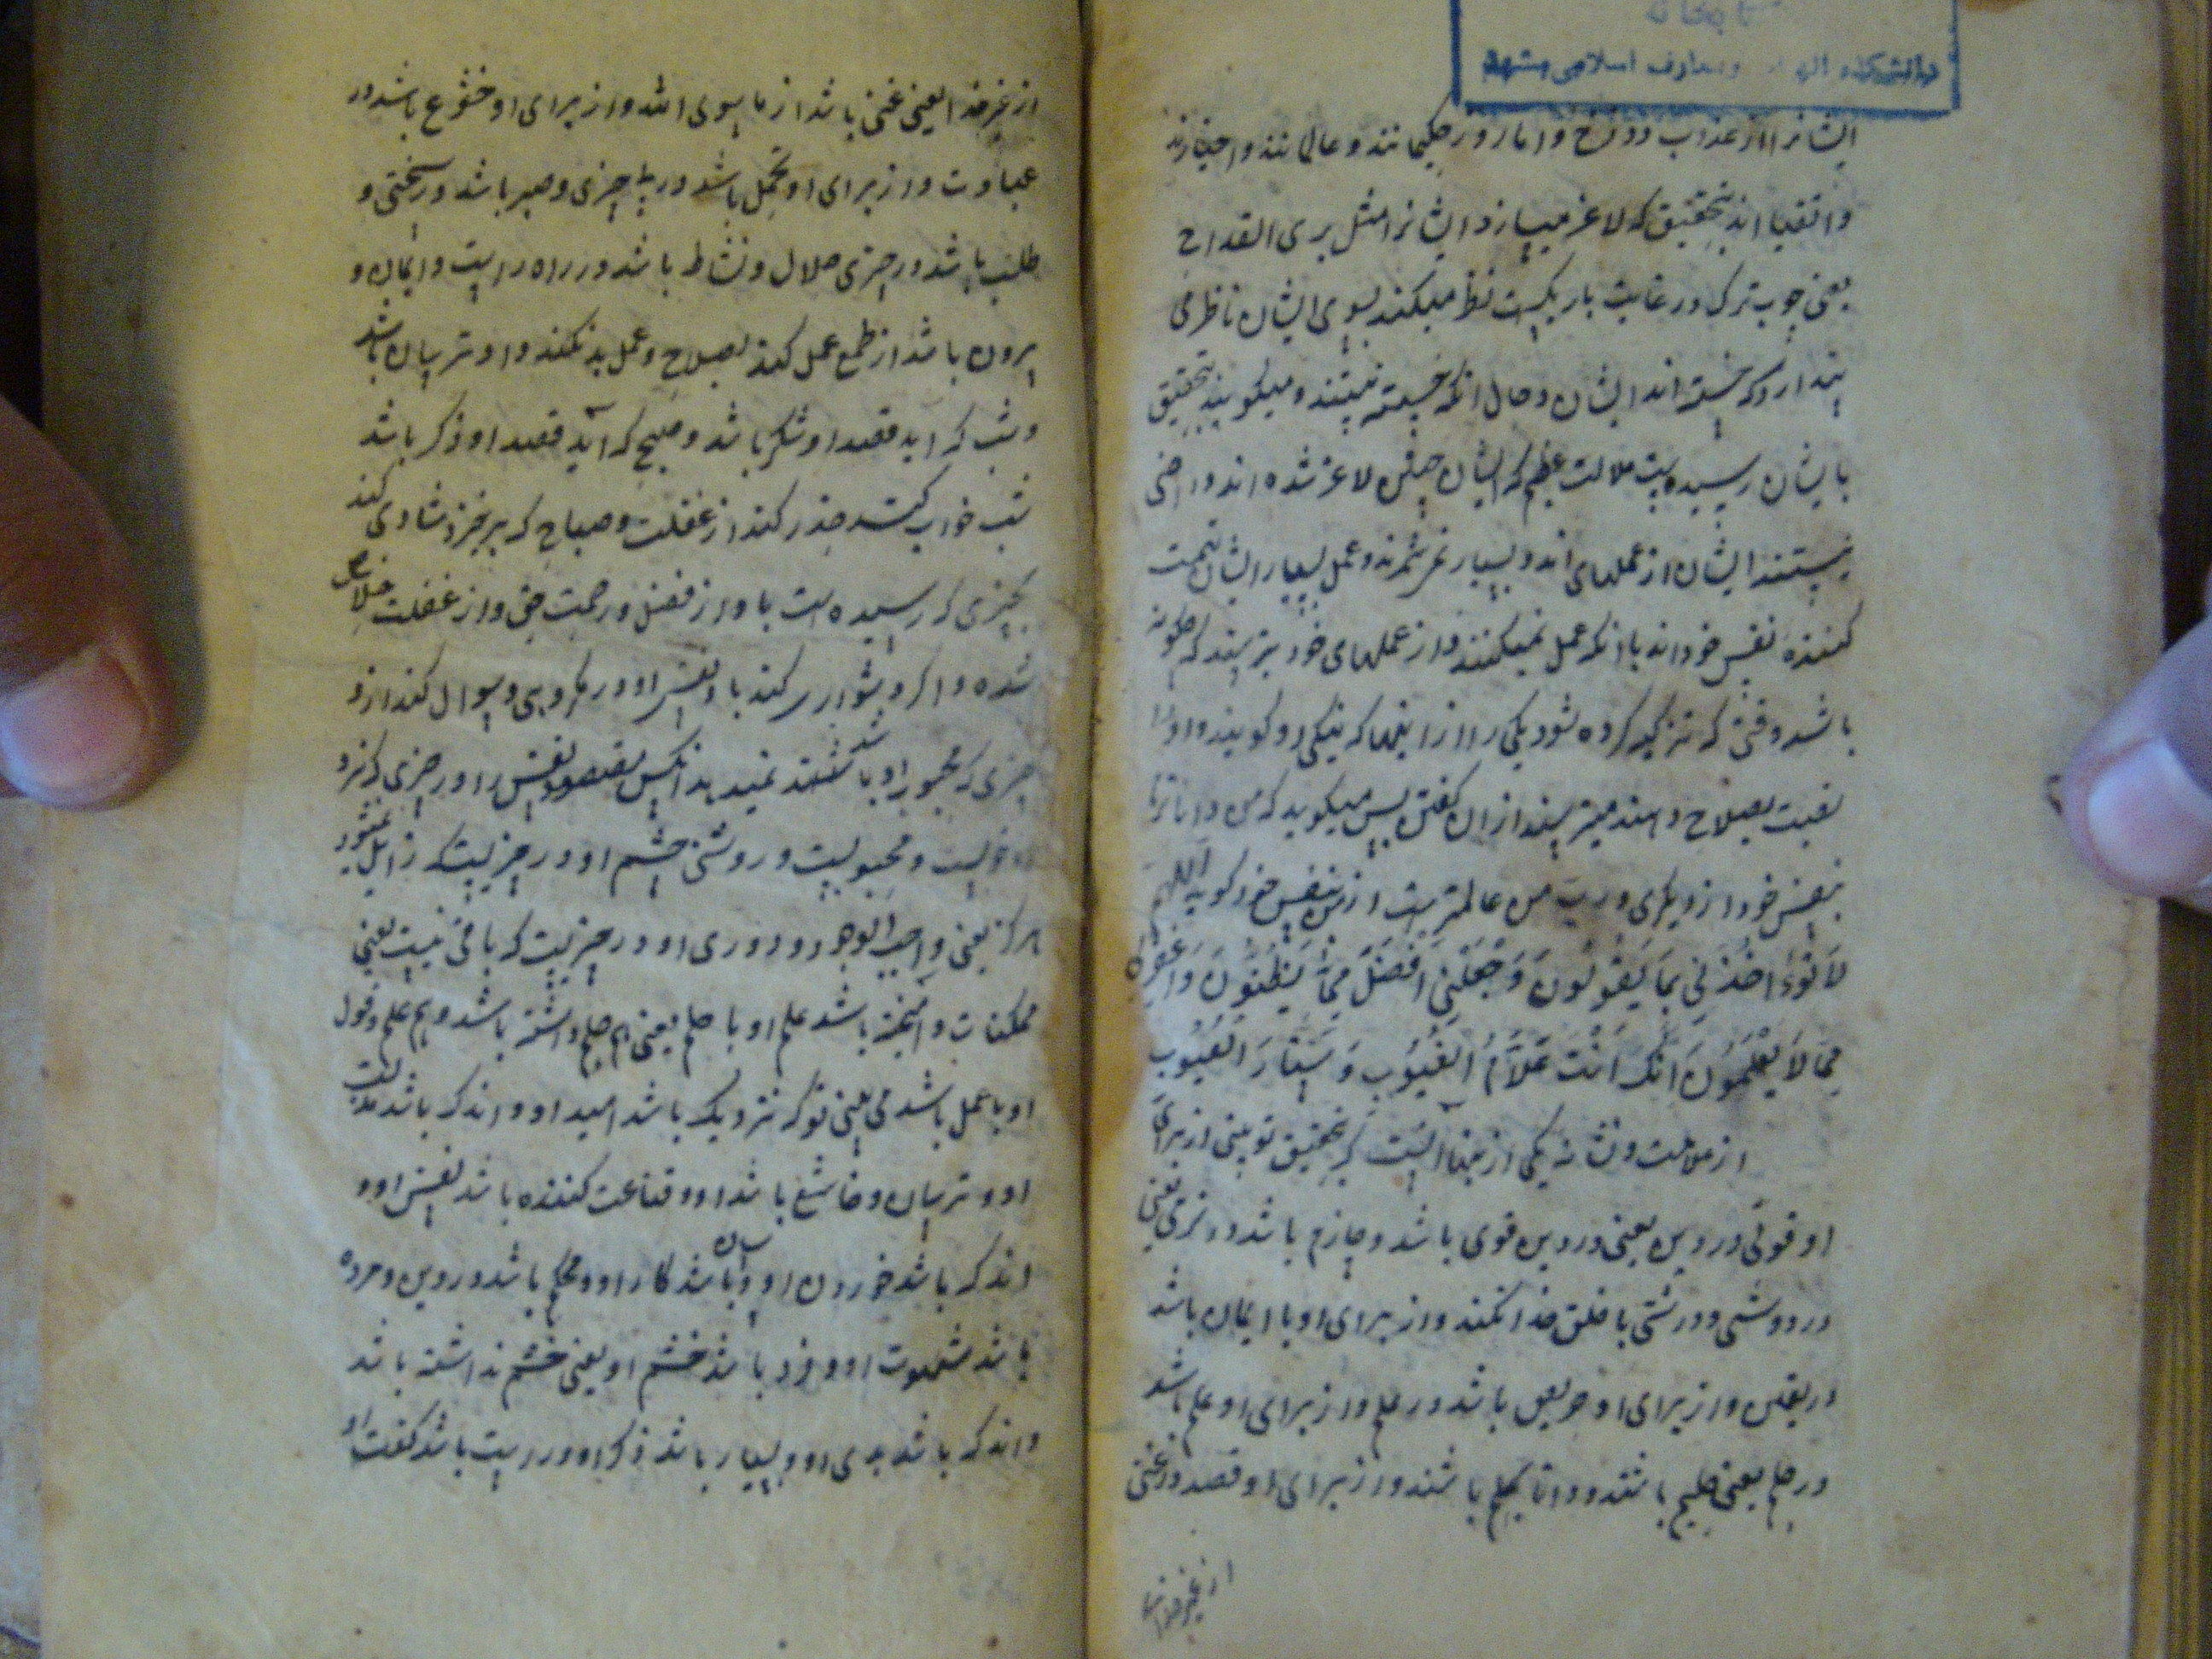 کتابخانه
دانشکده الهیات ومعارف اسلامی مشهد
ایشانرا از عذاب دوزخ و اما در روز حکیمانند و عالمانند و اخیارند
و اتقیااند بتحقیق که لاغر میسازد ایشانرا مثل بری القداح
یعنی چوب تر که در غایت باریکیست نظر میکند بسوی ایشان ناظر می
پندارد که خسته اند ایشان و حال آنکه خسته نیستند و میکویند بتحقیق
بایشان رسیده است ملالت عظیم که ایشان چنین لاغر شده اند و راضی
نیستند ایشان از عملهای اندک و بسیار نمی شمرند و عمل بسیار ایشان تهمت
کننده نفس خوداند با آنکه عمل نمیکنند و از عملهای خود میترسند که چکونه
باشد وقتی که تزکیه کرده شود یکی را از اینها که نیکی او کویند و او را
نسبت بصلاح دهند میترسند از آن کفتن پس میکوید که من داناترم
بنفس خود از دیکری و رب من عالمتر است از من بنفس خود کوید اللهم
لا تؤاخذنی بما یقولون وجعلنی افضل مما یظنون واغفرلی
مما لا یعلمون انک انت علام الغیوب و ستار العیوب
از علامت و نشانه یکی از اینها آنست که بتحقیق تو بینی از برای
او قوتی در دین یعنی در دین قوی باشد و جازم باشد در نرمی یعنی
در دوستی و درشتی با خلق خدا نکند و از برای او با ایمان باشد
در یقین و از برای او حریص باشد در علم و از برای او علم باشد
در حلم یعنی حلیم باشند و دانا بحلم باشند و از برای او قصد در غنی
از غیر خدا
از غیر خدا یعنی غنی باشد از ما سوی الله و از برای او خشوع باشد در
عبادت و از برای او تجمل باشد در بی چیزی و صبر باشد در سختی و
طلب باشد در چیزی حلال و نشاط باشد در راه راست و ایمان و
بیرون باشد از طمع عمل کند بصلاح و عمل بد نکند و او ترسان باشد
و شب که آید قصد او شکر باشد و صبح که آید قصد او ذکر باشد
شب خواب کند حذر کند از غفلت و صباح که برخیزد شادی کند
بچیزی که رسیده است باو از فضل و رحمت حق و از غفلت خلاص
شده و اکر دشوار کند با او نفس او در مکروهی و سوال کند ازو
چیزی که محبوب او باشد نمیدهد آنکس مقصود نفس را در چیزی که نزد
او خواست و محبوبست و روشنی چشم او در چیزیست که زایل نمیشود
هرکز یعنی واجب الوجود و دوری او در چیزیست که باقی نیست یعنی
ممکنات و آمیخته باشد علم او با حلم یعنی هم حلم داشته باشد و هم علم و قول
او با عمل باشد می بینی تو که نزدیک باشد امید او و اندک باشد
او و ترسان و خاشع باشد او و قناعت کننده باشد نفس او و
اندک باشد خوردن او و آسان باشد کار او و محکم باشد در دین و مرده
باشد شهوت او و فرو باشد خشم او یعنی خشم نداشته باشد
و اندک باشد بدی او و بسیار باشد ذکر او و راست باشد کفت او